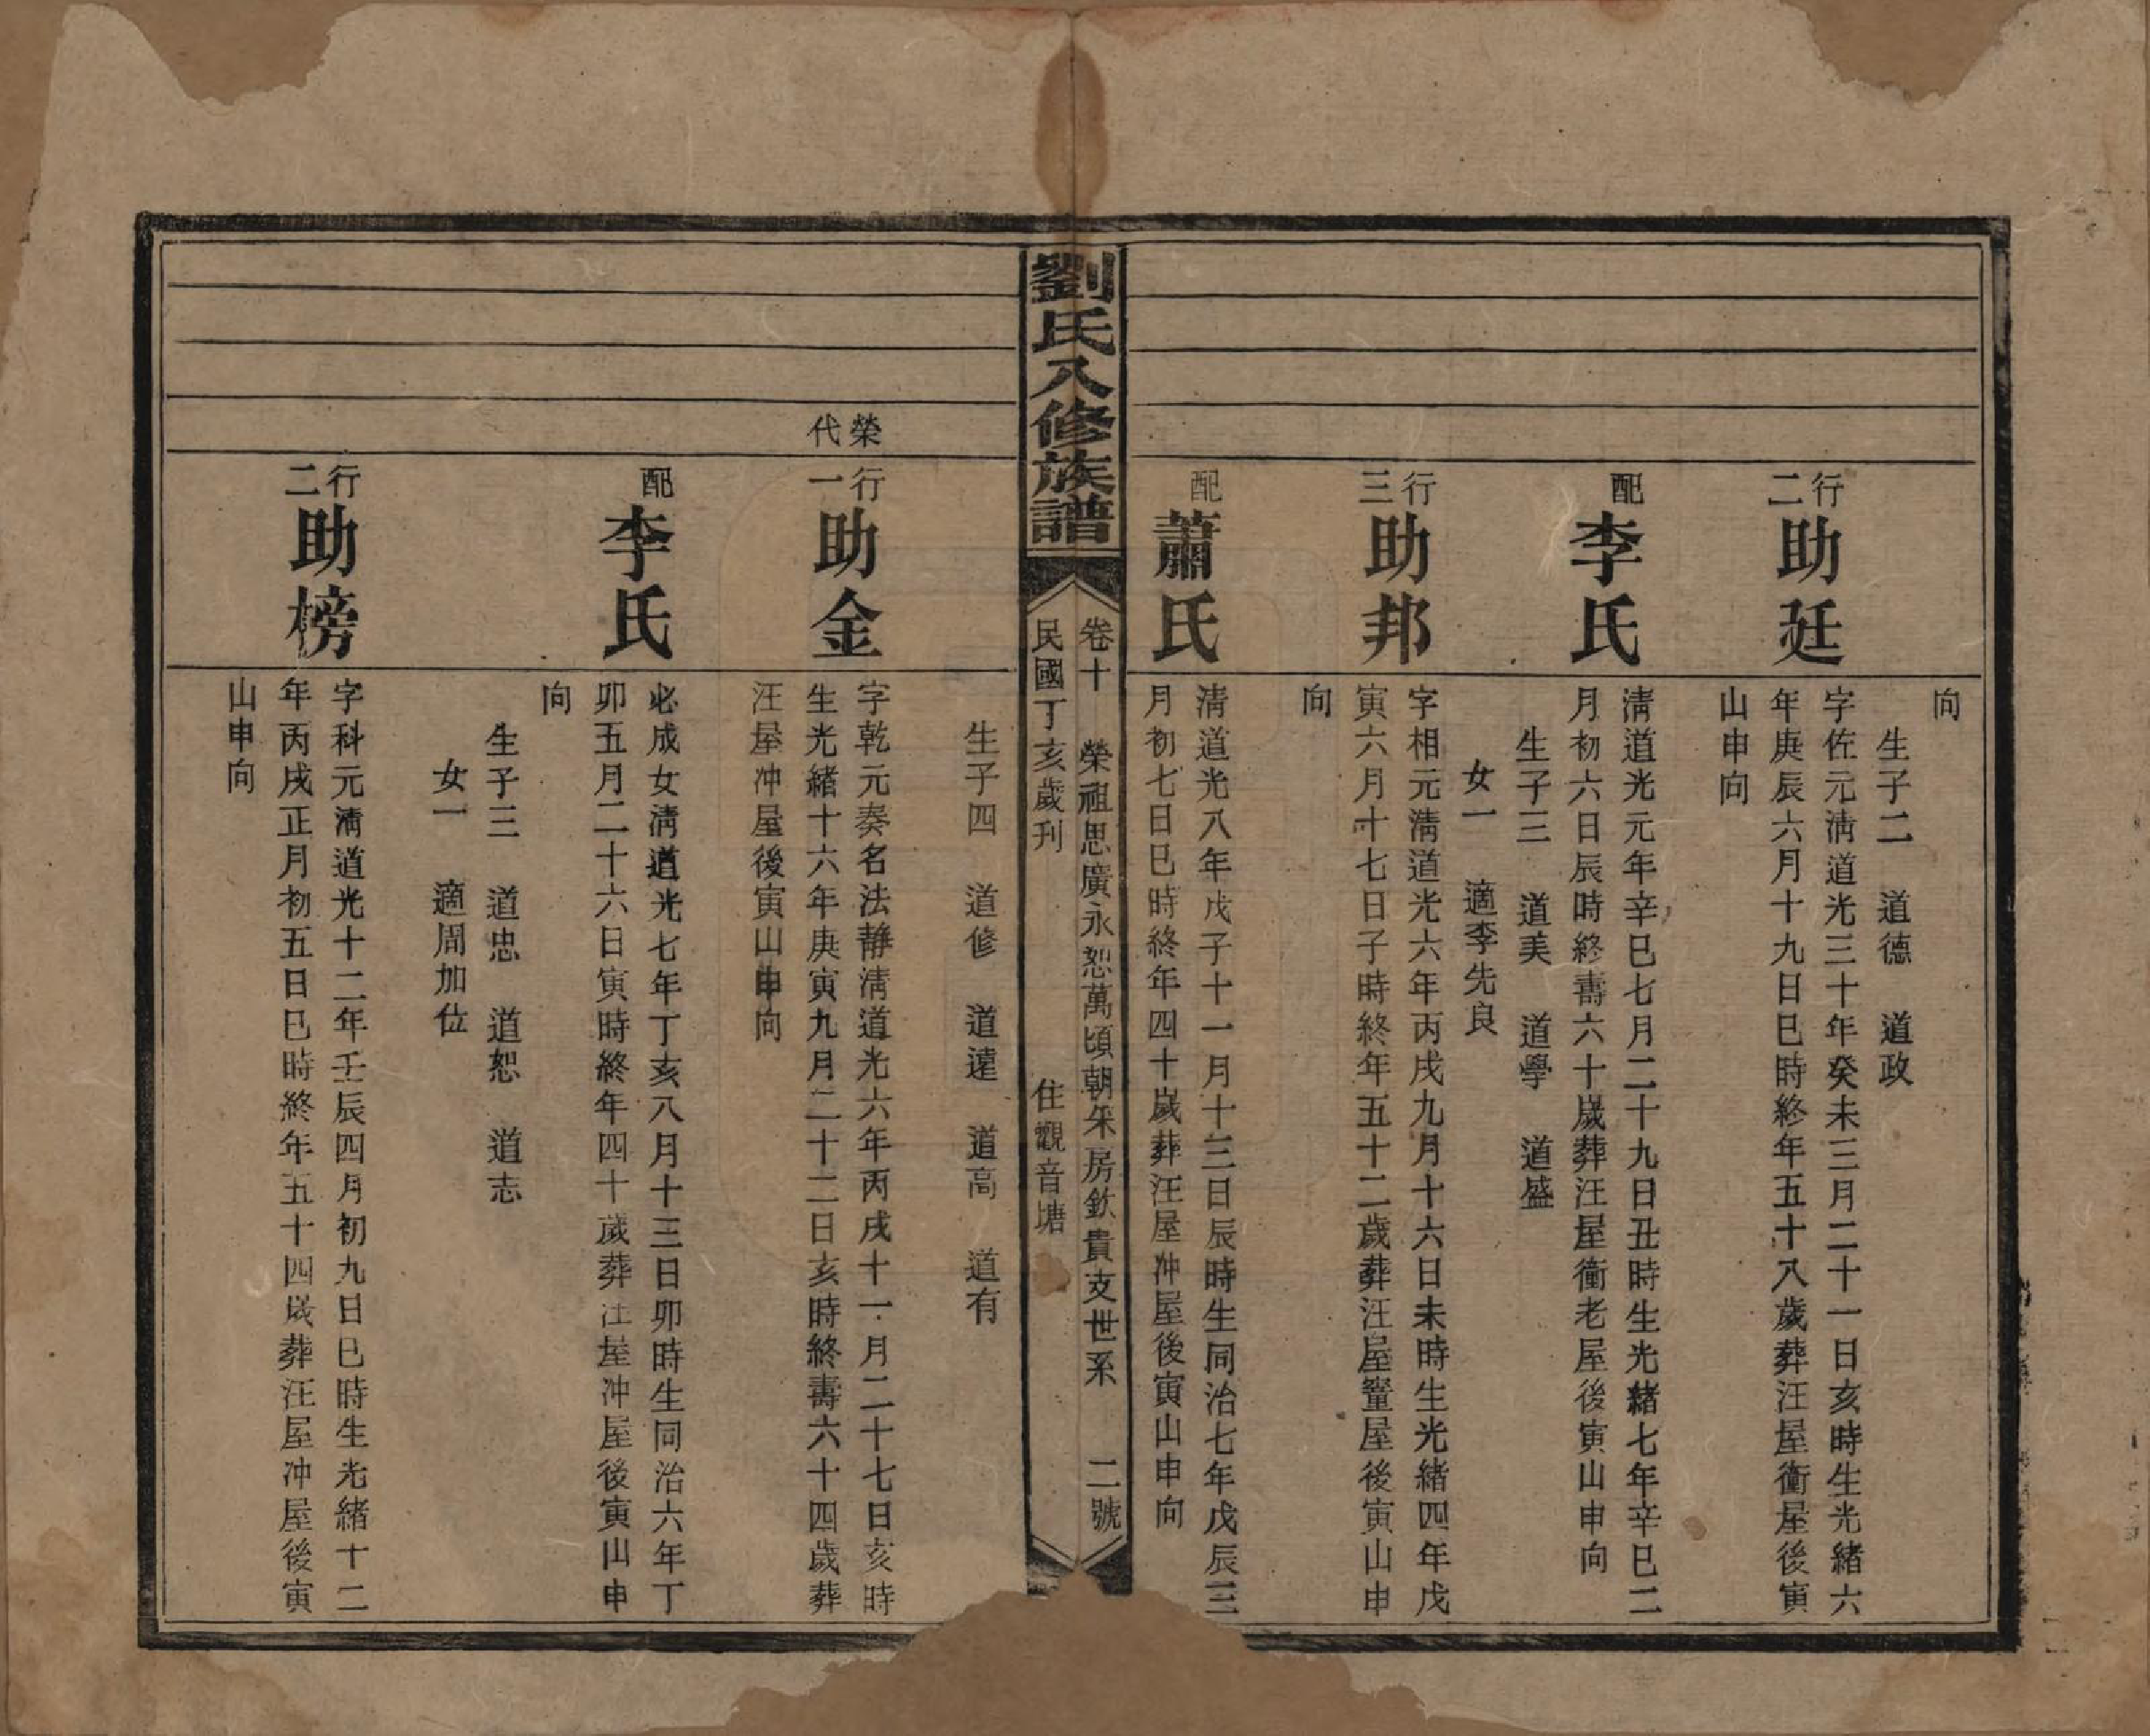 向
生子二　道德　道政
行二
助廷
字佐元淸道光三十年癸未三月二十一日亥時生光緒六
年庚辰六月十九日巳時終年五十八歲葬汪屋衝屋後寅
山申向
配
李氏
淸道光元年辛巳七月二十九日丑時生光緒七年辛巳二
月初六日辰時終壽六十歲葬汪屋衝老屋後寅山申向
生子三　道美　道學　道盛
女一　適李先良
行三
助邦
字相元淸道光六年丙戌九月十六日未時生光緒四年戊
寅六月十七日子時終年五十二歲葬汪屋衝屋後寅山申
向
配
蕭氏
淸道光八年戊子十一月十三日辰時生同治七年戊辰三
月初七日巳時終年四十歲葬汪屋冲屋後寅山申向
劉氏八修族譜
卷十　榮祖思廣永恕萬頃朝宋房欽貴支世系　二號
民國丁亥歲刊　住觀音塘
生子四　道修　道遠　道高　道有
榮代
行一
助金
字乾元奏名法靜淸道光六年丙戌十一月二十七日亥時
生光緒十六年庚寅九月二十二日亥時終壽六十四歲葬
汪屋冲屋後寅山申向
配
李氏
必成女淸道光七年丁亥八月十三日卯時生同治六年丁
卯五月二十六日寅時終年四十歲葬汪屋冲屋後寅山申
向
生子三　道忠　道恕　道志
女一　適周加位
行二
助榜
字科元淸道光十二年壬辰四月初九日巳時生光緒十二
年丙戌正月初五日巳時終年五十四歲葬汪屋冲屋後寅
山申向